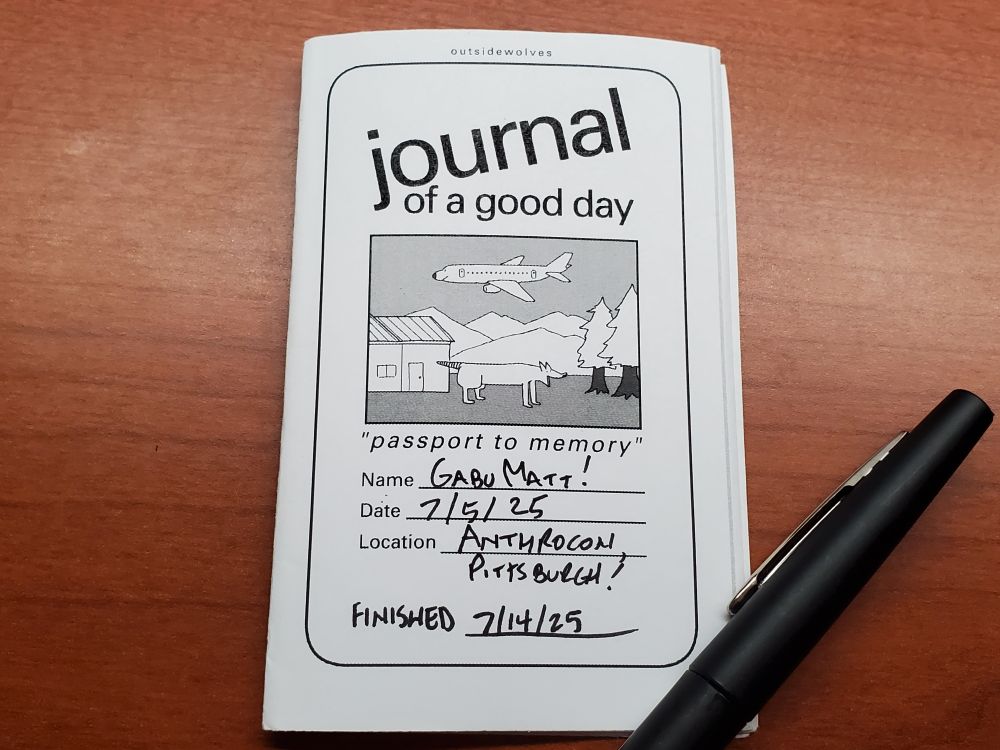 outsidewolves
journal
of a good day
"passport to memory"
Name GABU MATT!
Date 7/5/25
Location ANTHROCON,
PITTSBURGH!
FINISHED 7/14/25